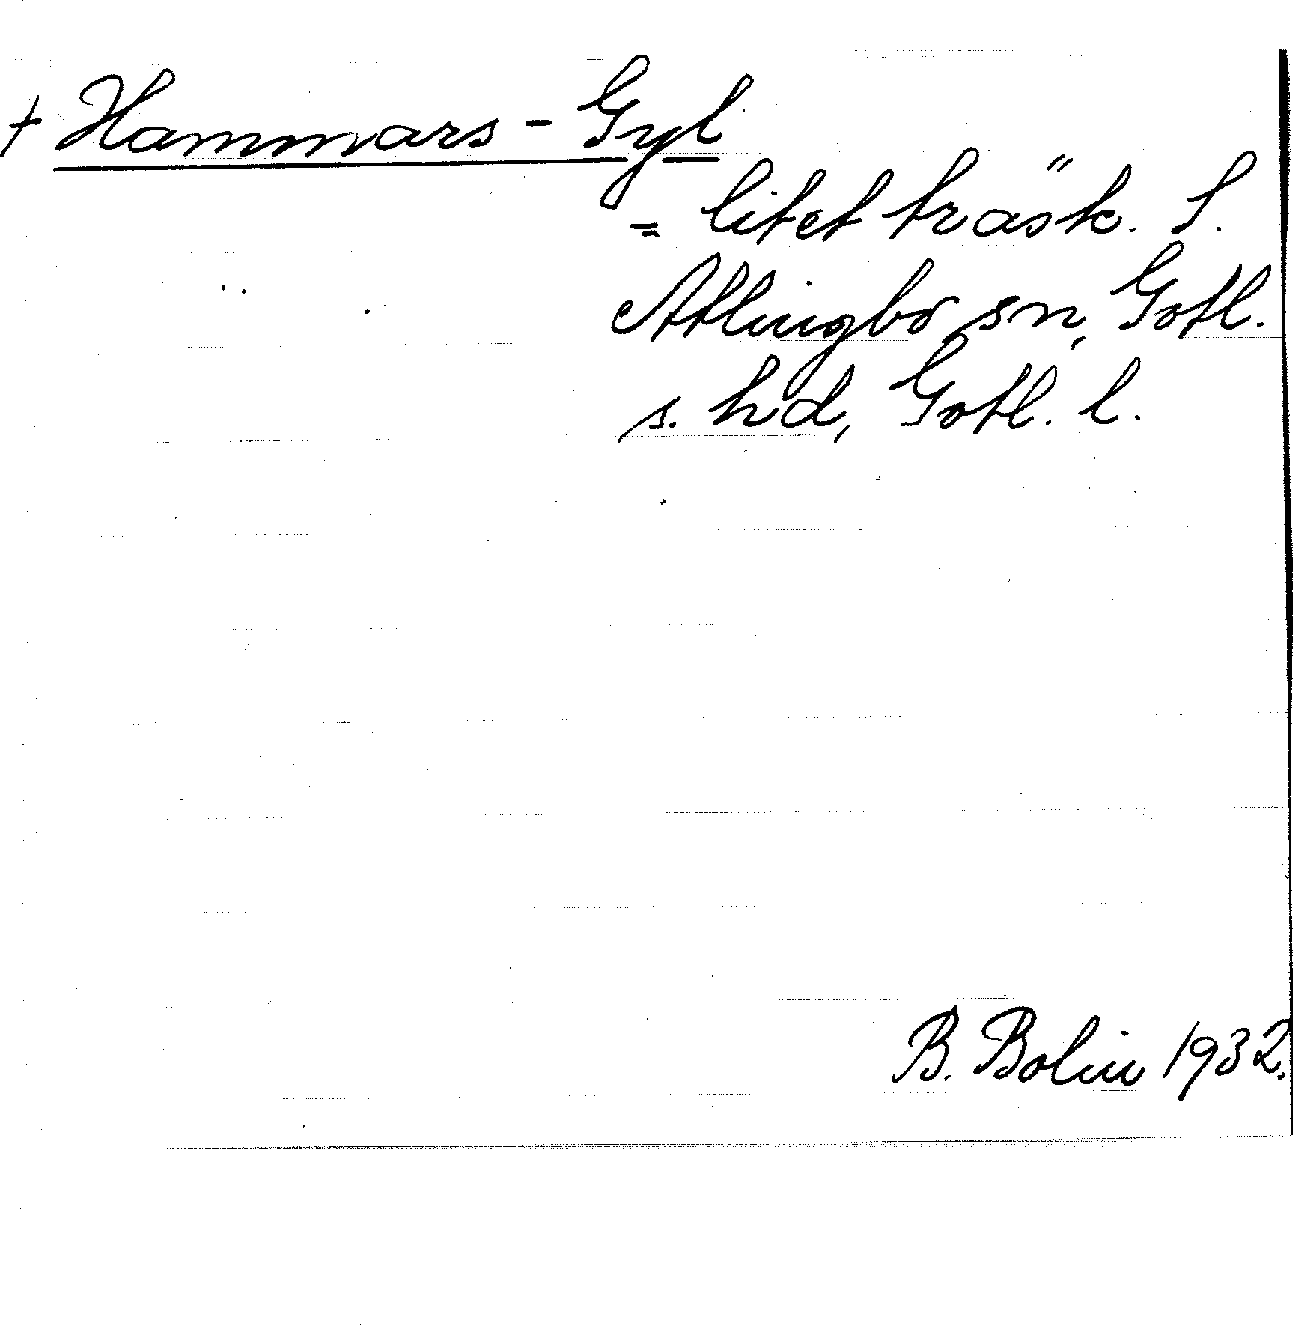 + Hammars-Gyl
= litet träsk. S.
Atlingbo sn, Gotl.
s. hd, Gotl. l.
B. Bolin 1932.